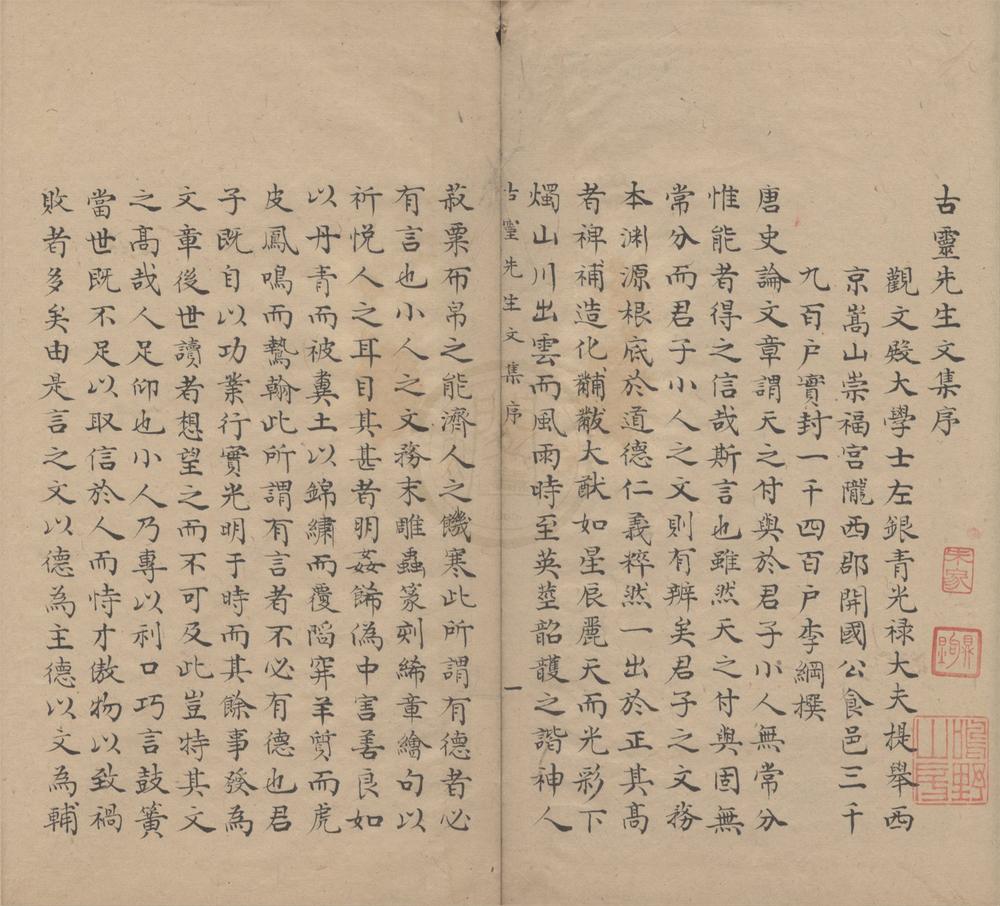 古靈先生文集序
觀文殿大學士左銀青光禄大夫提舉西
京嵩山崇福宮隴西郡開國公食邑三千
九百户實封一千四百户李綱撰
唐史論文章謂天之付與於君子小人無常分
惟能者得之信哉斯言也雖然天之付與固無
常分而君子小人之文則有辨矣君子之文務
本渊源根底於道德仁義粹然一出於正其髙
者裨補造化黼黻大猷如星辰麗天而光彩下
燭山川出雲而風雨時至英莖韶頀之諧神人
古靈先生文集序
一
菽粟布帛之能濟人之饑寒此所謂有德者必
有言也小人之文務末雕蟲篆刻絺章繪句以
祈悦人之耳目其甚者朋姦飾偽中害善良如
以丹青而被糞土以錦繡而覆陷穽羊質而虎
皮鳳鳴而鷙翰此所謂有言者不必有德也君
子既自以功業行實光明于時而其餘事發為
文章後世讀者想望之而不可及此豈特其文
之髙哉人足仰也小人乃專以利口巧言鼓簧
當世既不足以取信於人而恃才傲物以致禍
敗者多矣由是言之文以德為主德以文為輔